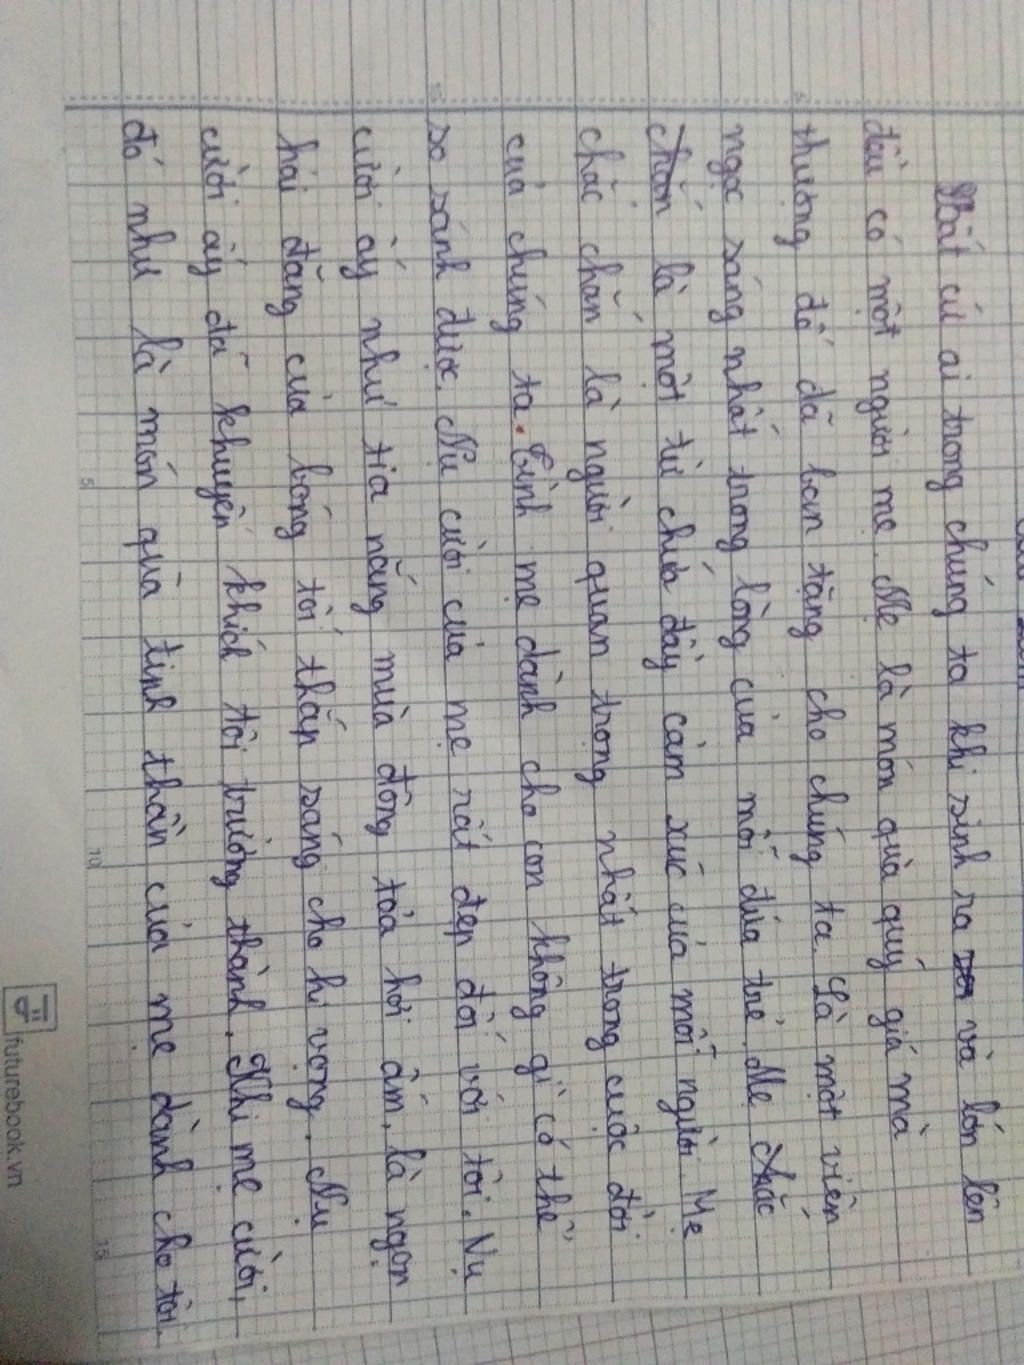 Bất cứ ai trong chúng ta khi sinh ra và lớn lên
đều có một người mẹ. Mẹ là món quà quý giá mà
thượng đế đã ban tặng cho chúng ta. Là một viên
ngọc sáng nhất trong lòng của mỗi đứa trẻ. Mẹ chắc
chắn là một từ chứa đầy cảm xúc của mỗi người. Mẹ
chắc chắn là người quan trọng nhất trong cuộc đời
của chúng ta. Tình mẹ dành cho con không gì có thể
so sánh được. Nụ cười của mẹ rất đẹp đối với tôi. Nụ
cười ấy như tia nắng mùa đông tỏa hơi ấm, là ngọn
hải đăng của bóng tối thắp sáng cho hi vọng. Nụ
cười ấy đã khuyến khích tôi trưởng thành. Khi mẹ cười,
đó như là món quà tinh thần của mẹ dành cho tôi.
5
10
15
5
10
futurebook.vn